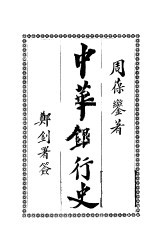 周葆鑾著
中華銀行史
鄭釗署簽